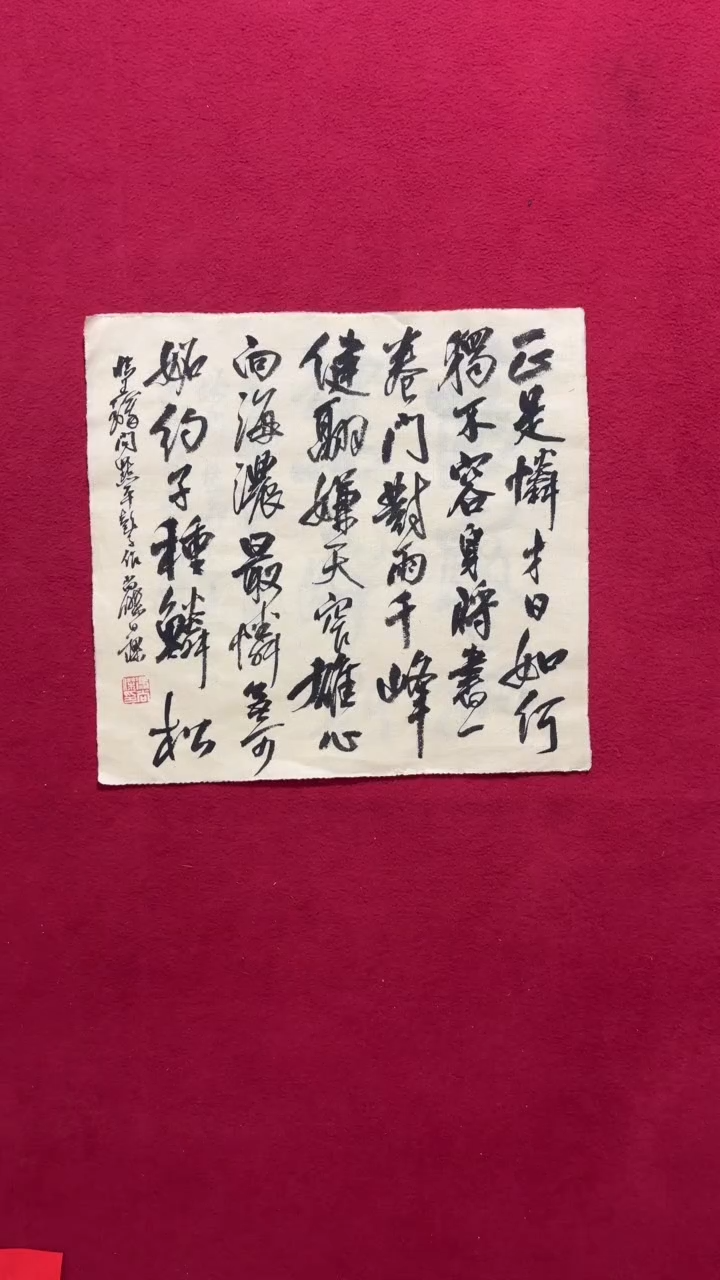 正是憐才日如何
獨不容身將書一
卷門對兩千峰
健翮嫌天窄雄心
向海濃最憐無可
如約子種鱗松